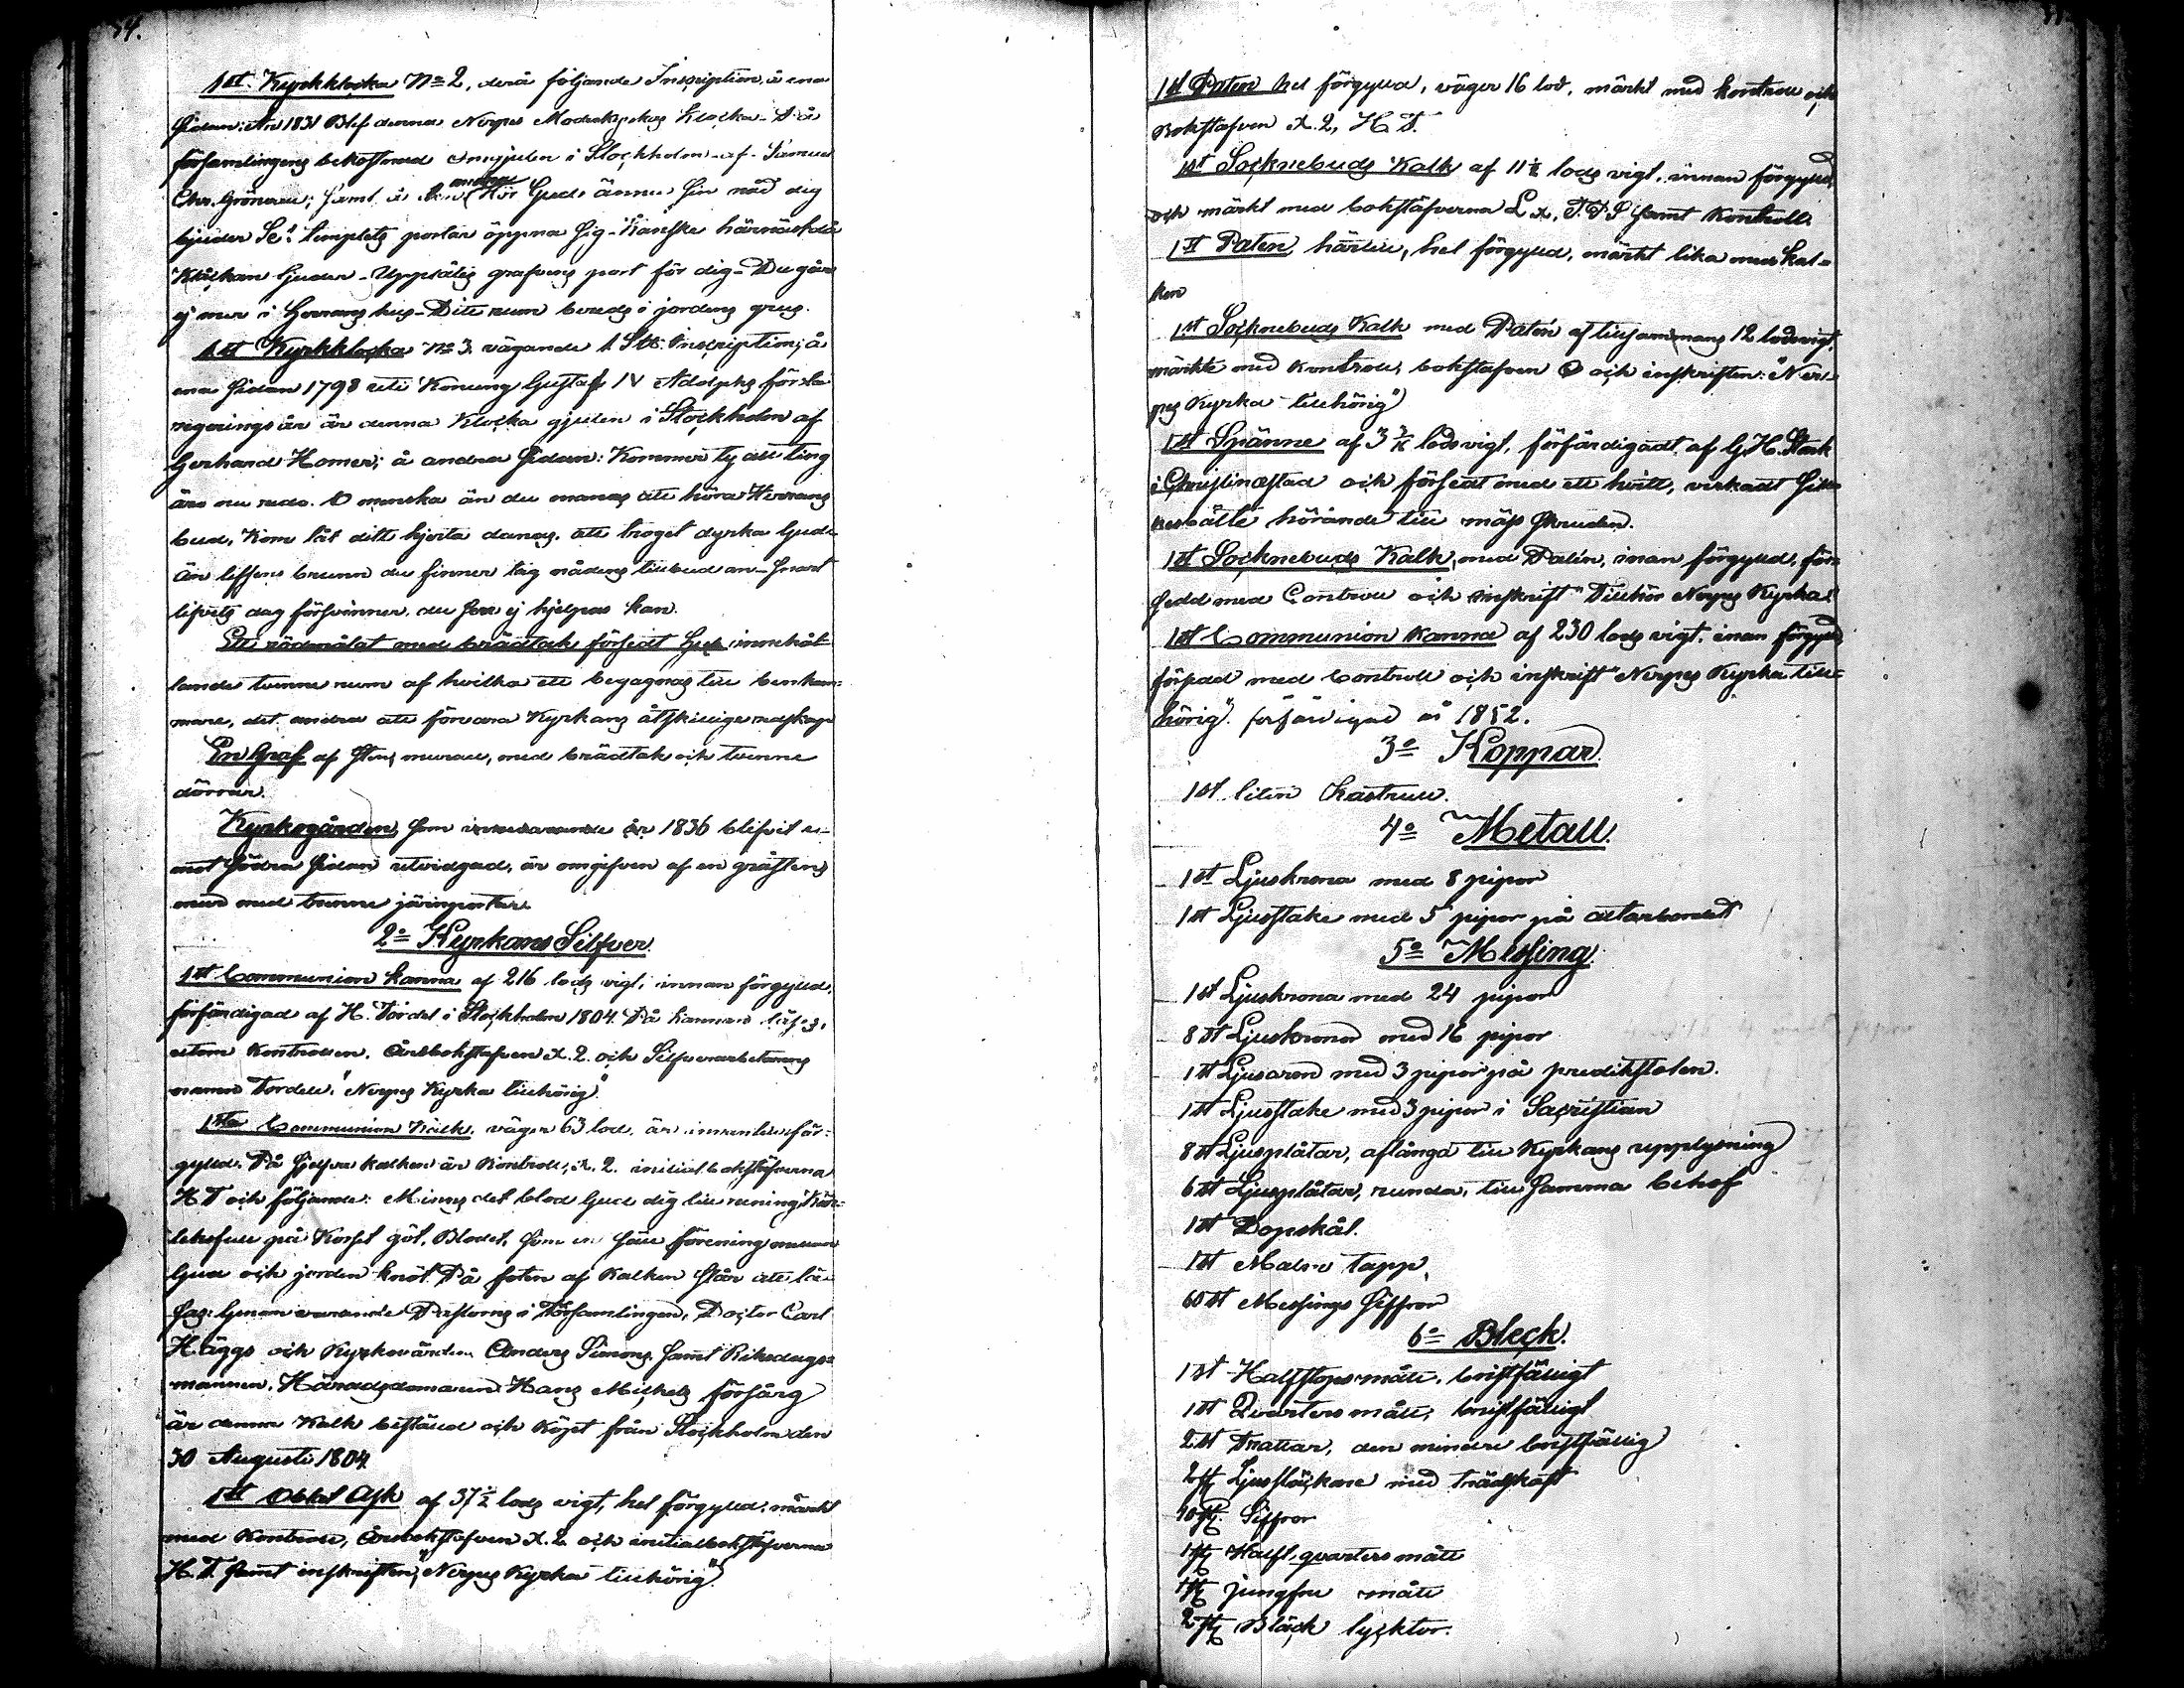 1 st. Kyrkklocka No 2, derå följande Inscription, å ena
sidan: År 1831 Blef denna Nerpes Moderkyrkas Klocka - På
församlingens bekostnad omgjuten i Stockholm - af - Samuel
Chr. Grönvall; samt å den andra Hör Gud ännu sin nåd dig
bjuder Se! templets portar öppna sig - Kanske härnäst då
klockan ljuder - Upplåtes grafvens port för dig - Du går
ej mer i Herrans hus - Ditt rum bereds i jordens grus.
1 st Kyrkklocka No 3. vägande 1 Inscription; å
ena sidan 1798 uti Konung Gustaf IV Adolphs första
regerings år är denna Klocka gjuten i Stockholm af
Gerhard Horner; å andra sidan: Kommer ty all ting
äro nu redo. O menska än du manas att höra Herrans
bud, Kom låt ditt hjerta danas, att troget dyrka Gud
Än lifsens brunn du finner tag nådens tillbud an - snart
lifvets dag försvinner, du ej hjelpas kan.
Ett rödmålat med brädtak försedt hus innehål-
lande tvenne rum af hvilka ett begagnas till benkam-
mare, det andra att förvara Kyrkans åtskilliga redskap
En Graf af sten murad, med brädtak och tvenne
dörrar.
Kyrkogården, som år 1836 blifvit ut-
mot södra sidan utvidgad, är omgifven af en gråstens
mur med tvenne järnportar
2o Kyrkans Silfver.
1 st Communion kanna af 216 lods vigt, innan förgylld,
förfärdigad af H. Tordel i Stockholm 1804. På kannan läses,
utom Kontrollen, Årsbokstafven A. 2. och Silfverarbetarens
namn Tordell, "Nerpes Kyrka tillhörig"
1 st Communion Kalk, väger 63 lod, är innantill för-
gylld. På sjelfva kalken är Kontroll, A. 2. initialbokstäfverna
H T och följande: Minns det blod Gud dig till rening, Kär-
leksfull på Korset göt, Blodet, som en säll förening mellan
Gud och jorden knöt. På foten af Kalken står att lä-
sas: Genom varande Pastorns i Församlingen, Doctor Carl
Häggs och Kyrkovärden Anders Simons samt Riksdags-
mannen, Häradsdomaren Hans Michels försorg
är denna Kalk beställd och köpt från Stockholm den
30 Augusti 1804
1 st Oblat Ask af 37 1/2 lods vigt, hel förgylld, märkt
med Kontroll, Årsbokstafven A. 2 och initialbokstäfverna
H. T. samt inskriften, "Nerpes Kyrka tillhörig".
1 st Paten hel förgylld, väger 16 lod, märkt med kontroll och
Bokstafven A. 2, H T.
1 st Socknebuds Kalk af 11 1/2 lods vigt, innan förgylld,
och märkt med bokstäfverna L samt Kontroll.
1 st Paten, härtill, hel förgylld, märkt lika med kal-
ken
1 st Socknebuds Kalk med Patén af tillsammans 12 lods vigt,
märkte med Kontroll, bokstafven och inskriften: "Ner-
pes Kyrka tillhörig"
1 st Spänne af lods vigt, förfärdigadt af G. H. Stark
i Christinestad och försedt med ett hvitt, virkadt sil-
kesbälte hörande till mäss skruden.
1 st Socknebuds Kalk, med Patén, innan förgylld, för-
sedd med Controll och inskrift "Tillhör Nerpes Kyrka"
1 st Communion Kanna af 230 lods vigt, innan förgylld
försedd med Controll och inskrift "Nerpes Kyrka till-
hörig". förfärdigad år 1852.
3o Koppar.
1 st. liten Kastrull.
4o Metall.
1 st Ljuskrona med 8 pipor
1 st Ljusstake med 5 pipor på altarbordet
5o Messing
1 st Ljuskrona med 24 pipor
8 st Ljuskronor med 16 pipor
1 st Ljusarm med 3 pipor på predikstolen.
1 st Ljusstake med 3 pipor i Sacristian
8 st Ljusplåtar, aflånga till Kyrkans upplysning
6 st Ljusplåtar, runda, till samma behof
1 st Dopskål.
1 st tapp,
60 st Messings Siffror
6o Bleck.
1 st Halfstops mått, bristfälligt
1 st Qvarters mått, bristfälligt
2 st Trattar, den mindre bristfällig
2 st Ljussläckare med trädskaft
10 st. Siffror
1 st Half, qvarters mått
1 st jungfru mått
2 st Bläck lycktor.